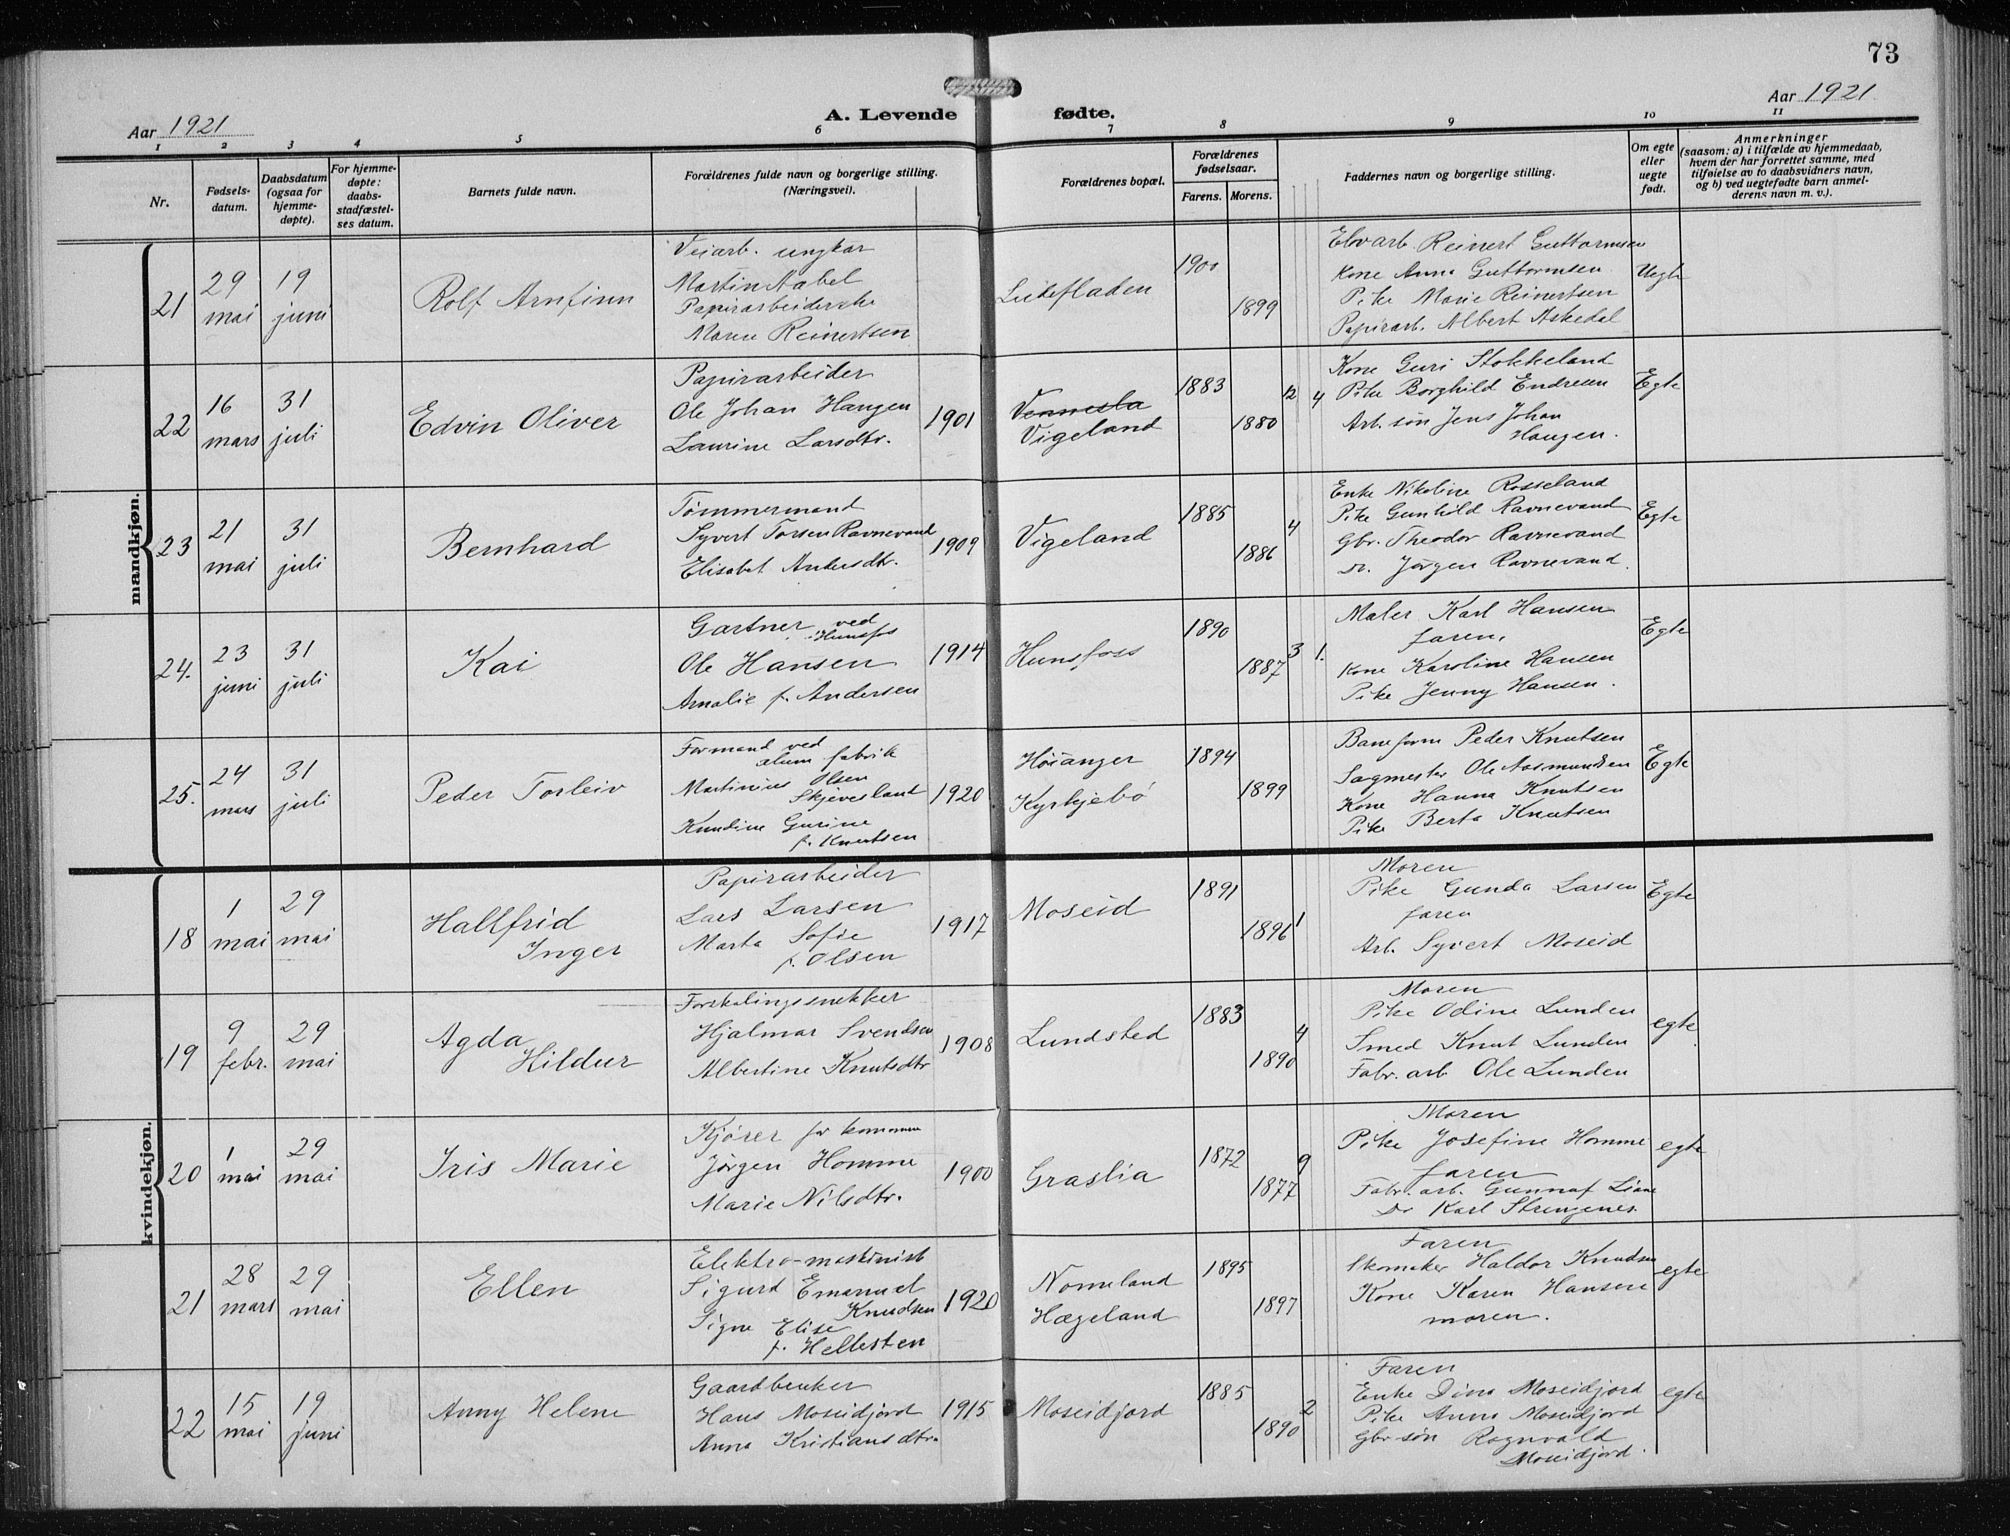 73
Aar 1921
A. Levende fødte.
Aar 1921
1 2 3 4 5 6 7 8 9 10 11
Nr.
Fødsels-datum.
Daabsdatum (ogsaa for hjemme-døpte).
For hjemme-døpte: daabs-stadfæstel-ses datum.
Barnets fulde navn.
Forældrenes fulde navn og borgerlige stilling. (Næringsvei).
Forældrenes bopæl.
Forældrenes fødselsaar.
Farens. Morens.
Faddernes navn og borgerlige stilling.
Om egte eller uegte født.
Anmerkninger (saasom: a) i tilfælde av hjemmedaab, hvem der har forrettet samme, med tilføielse av to daabsvidners navn, og b) ved uegtefødte barn anmel-derens navn m. v.).
mandkjøn.
21
29 mai
19 juni
Rolf Arnfinn
Veiarb. ungkar
Martin Aabel
Papirarbeiderske
Maren Reinertsen
1900
1899
Elvarb. Reinert Guttormsen
Kone Anna Guttormsen
Pike Marie Reinertsen
Papirarb. Albert Askedal
Uegte
22
16 mars
31 juli
Edvin Oliver
Papirarbeider
Ole Johan Haugen
Laurine Larsdtr.
1901
Vennesla
Vigeland
1883
1880
2 4
Kone Guri Stokkeland
Pike Borghild Endresen
Arb. søn Jens Johan
Haugen.
Egte
23
21 mai
31 juli
Bernhard
Tømmermand
Syvert Torsen Ravnevand
Elisabet Andersdtr.
1909
Vigeland
1885
1886
4
Enke Nikoline Rosseland
Pike Gunhild Ravnevand
Gbr. Theodor Ravnevand
Do. Jørgen Ravnevand.
Egte
24.
23 juni
31 juli
Kai
Gartner ved
Hunsfos
Ole Hansen
Amalie f. Andersen
1914
Hunsfoss
1890
1887
3 1.
Maler Karl Hansen
faren,
Kone Karoline Hansen
Pike Jenny Hansen.
Egte
25.
24 mars
31 juli
Peder Torleiv
Formand ved
alum fabrik
Martinius Olsen
Skjevesland
Knudine Gurine
f. Knutsen
1920
Høianger
Kyrkjebø
1894
1899
Baneform Peder Knutsen
Sagmester Ole Aasmundsen
Kone Hanna Knutsen
Pike Berta Knutsen
Egte
kvindekjøn.
18
1 mai
29 mai
Hallfrid
Inger
Papirarbeider
Lars Larsen
Marta Sofie
f. Olsen
1917
Moseid
1891
1896
1
Moren
Pike Gunda Larsen
faren
Arb. Syvert Moseid
Egte
19
9 febr.
29 mai
Agda
Hildur
Forskalingssnekker
Hjalmar Svendsen
Albertine Knutsdtr
1908
Lundsted
1883
1890
4
Moren
Pike Odine Lunden
Smed Knut Lunden
Fabr. arb Ole Lunden
egte
20
1 mai
29 mai
Iris Marie
Kjører for kommunen
Jørgen Homme
Marie Nilsdtr.
1900
Graslia
1872
1877
9
Moren
Pike Josefine Homme
faren
Fabr. arb. Gunnar Liane
Do Karl Strengenes.
egte
21
28 mars
29 mai
Ellen
Elektro-maskinist
Sigurd Emanuel
Knudsen
Signe Elise
f. Hellesten
1920
Nomeland
Hægeland
1895
1897
Faren
Skomaker Haldor Knudsen
Kone Karen Hansen
moren.
egte
22
15 mai
19 juni
Anny Helene
Gaardbruker
Hans Moseidjord
Anna Kristiansdtr.
1915
Moseidjord
1885
1890
2
Faren
Enke Dina Moseidjord
Pike Anna Moseidjord
Gbr søn Ragnvald
Moseidjord.
egte